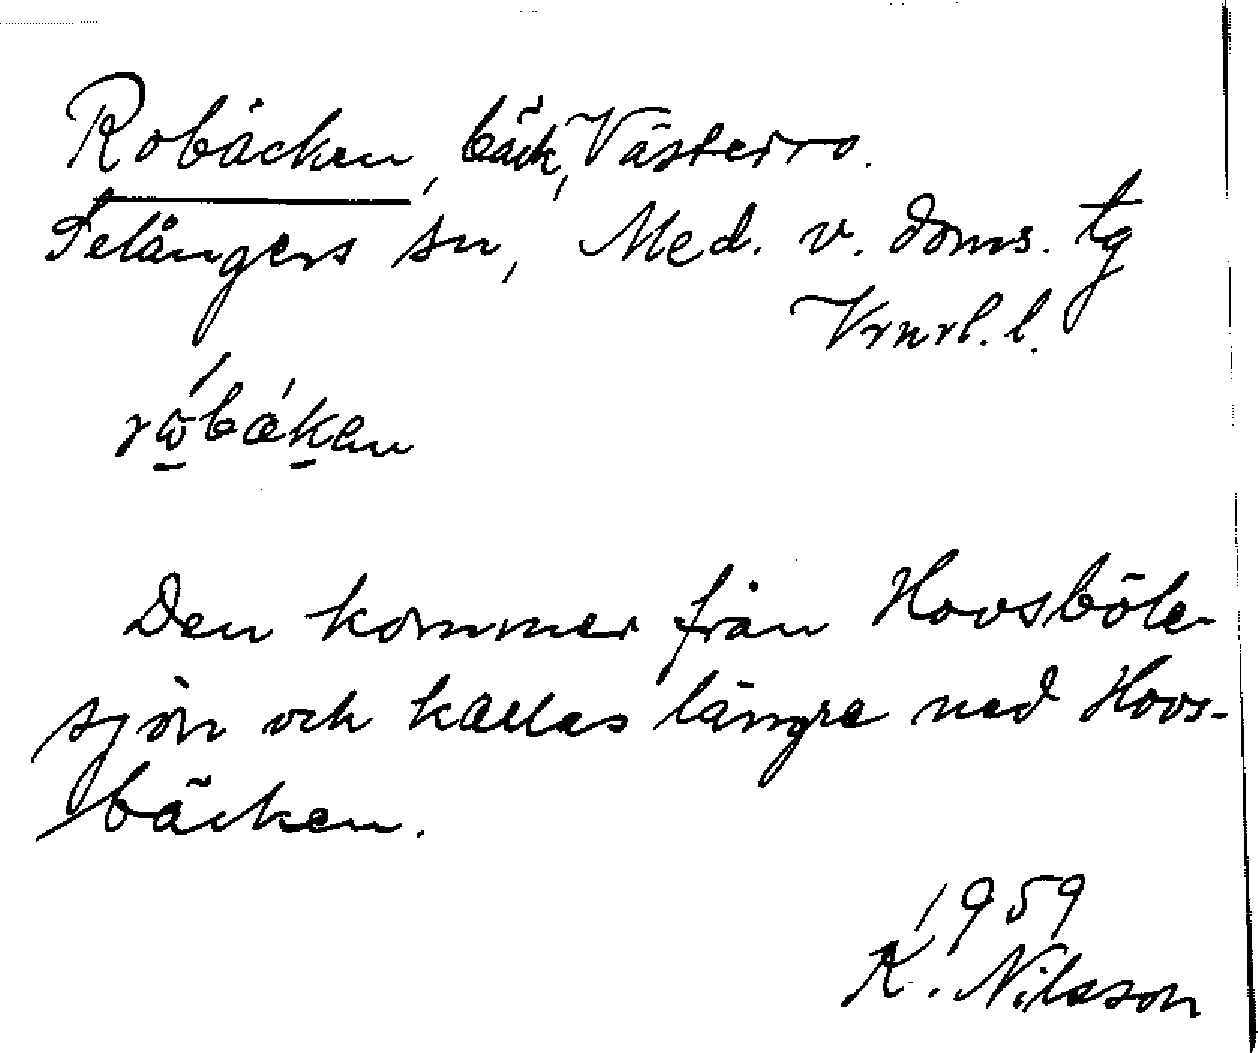 Robäcken, bäck, Västerro.
Selångers sn, Med. v. doms. tg
Vrnrl. l.
rώ̣bǽken
Den kommer från Hovsböle-
sjön och kallas längre ned Hovs-
bäcken.
1959
K. Nilsson